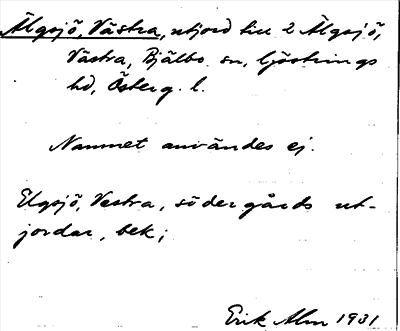 Älgsjö, Västra, utjord till 2 Älgsjö,
Västra, Bjälbo sn, Göstrings
hd, Österg. l.
Namnet användes ej.
Elgsjö, Vestra, södergårds ut-
jordar, bek;
Erik Alm 1931